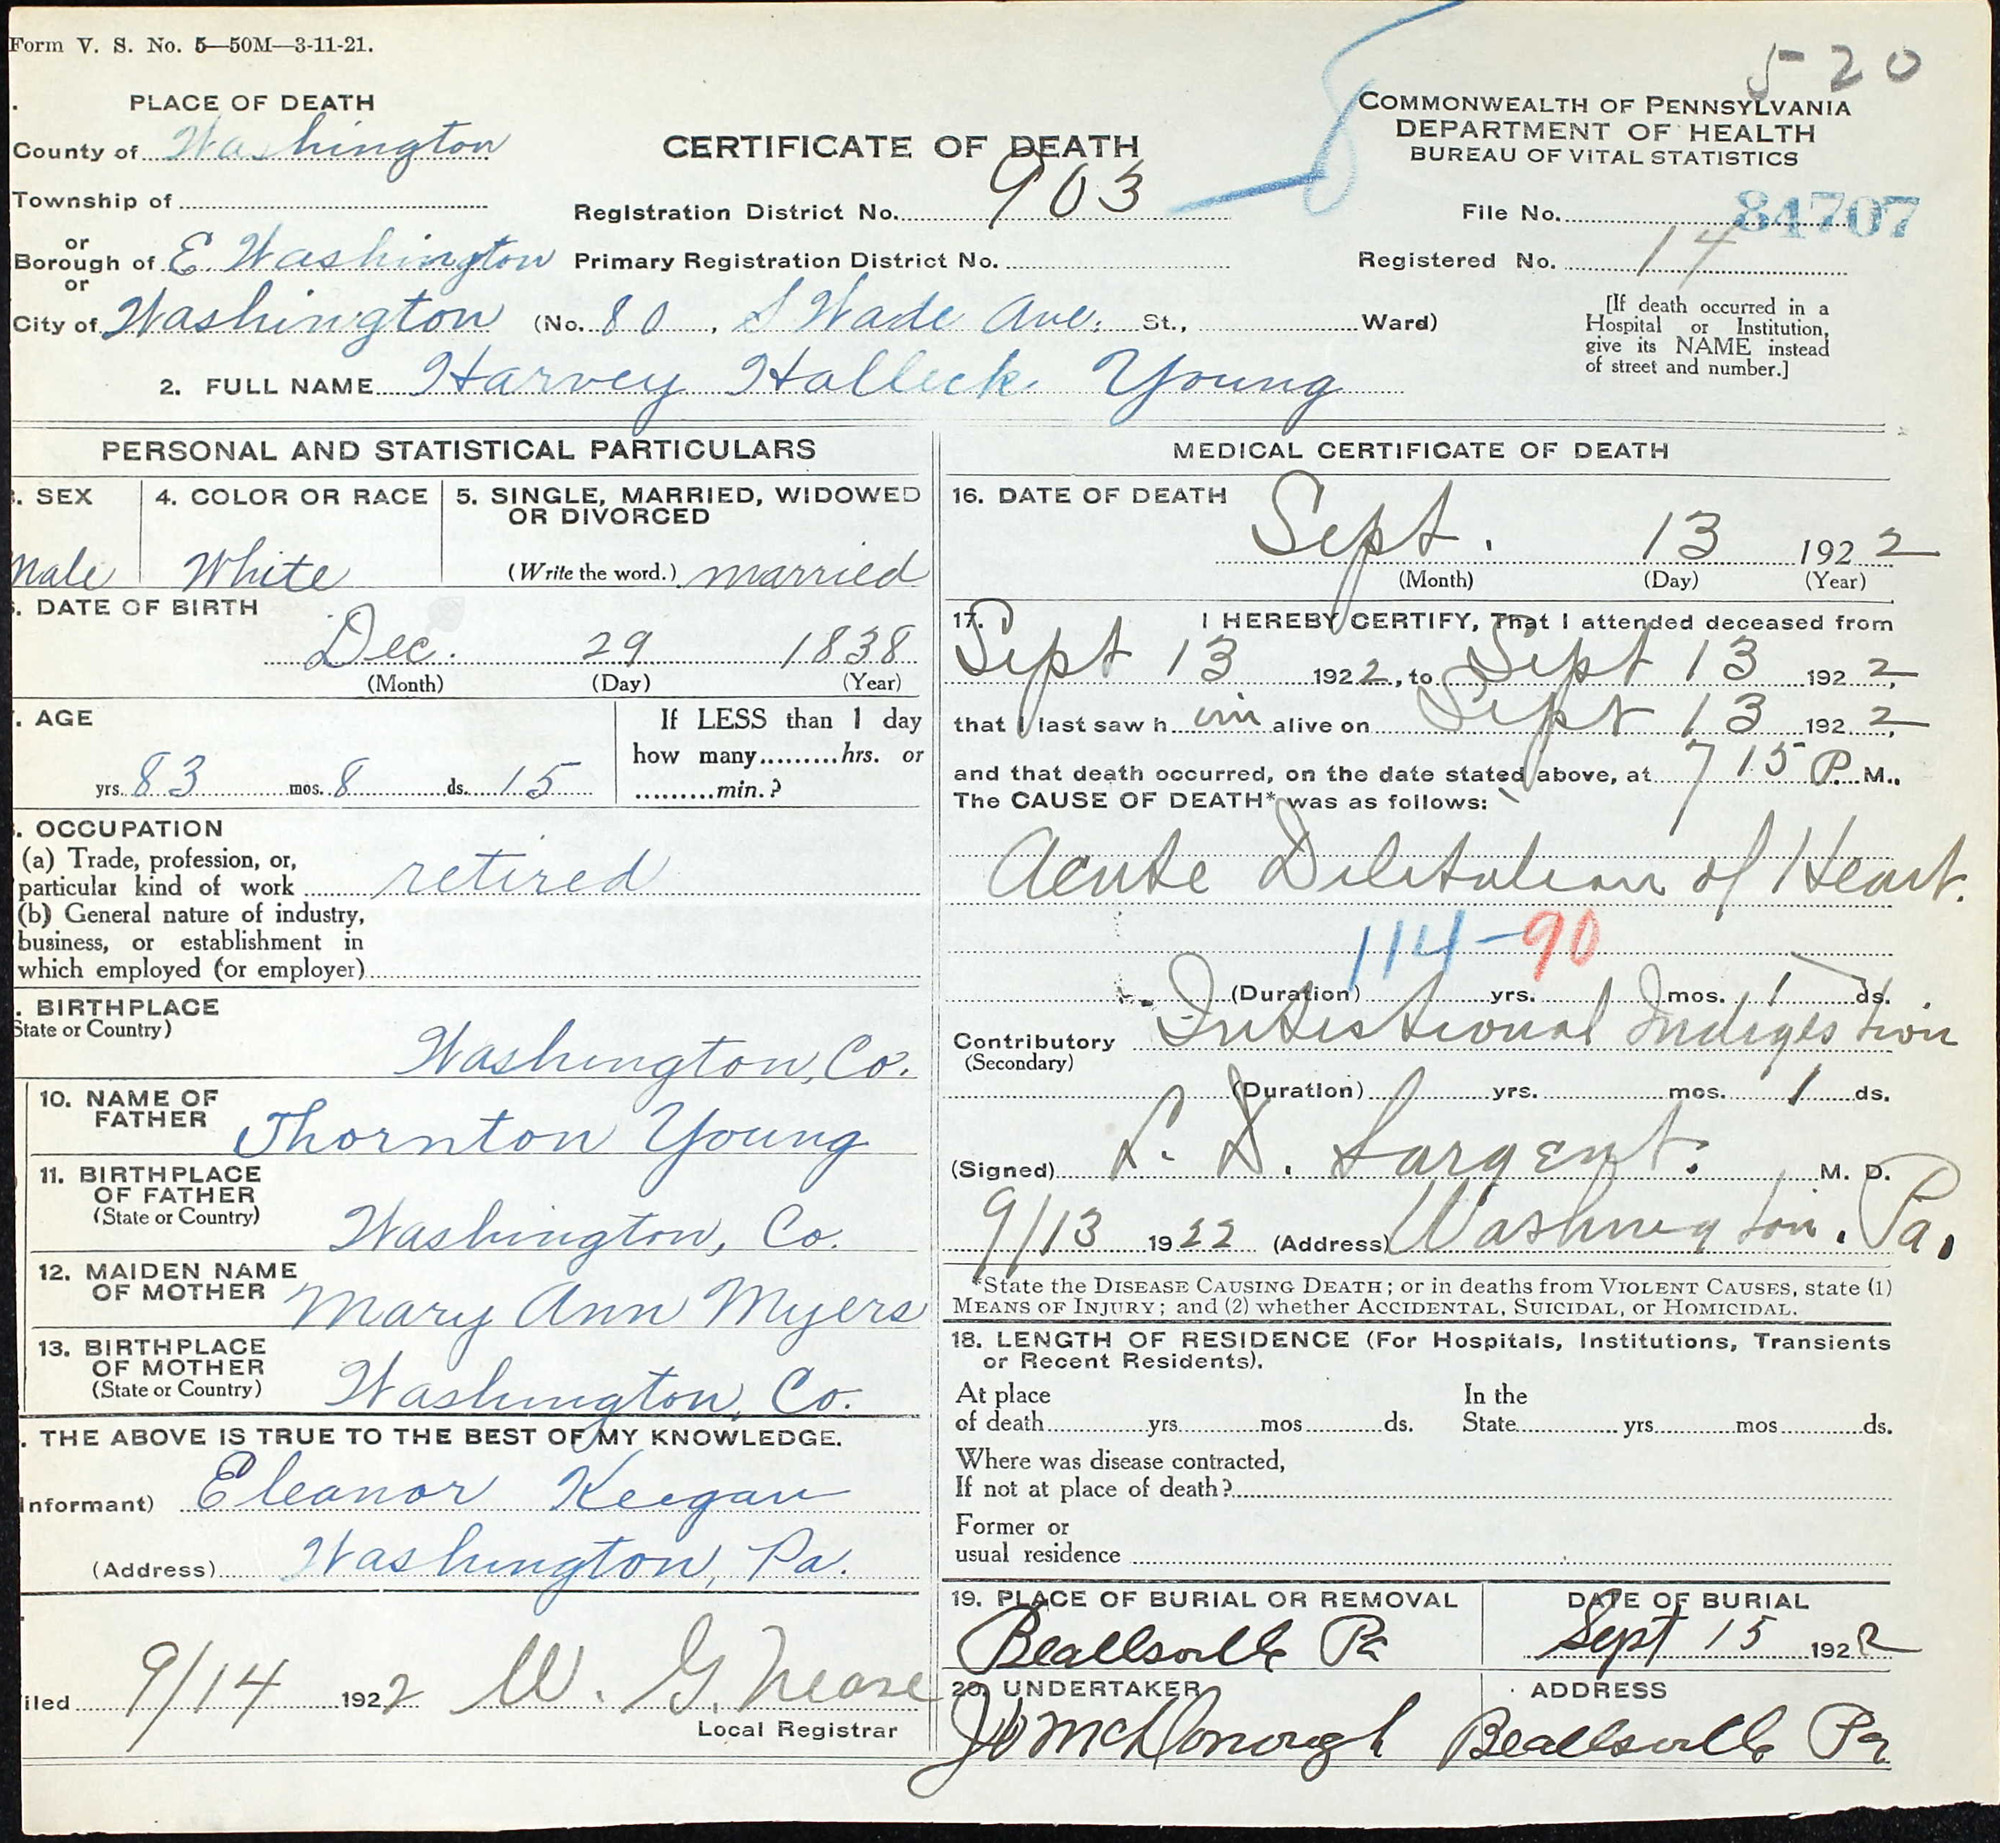 Form V. S. No. 5—50M—3-11-21.
520
PLACE OF DEATH
County of Washington
Township of
or
Borough of E. Washington
or
City of Washington (No. 80, S Wade Ave. St., Ward)
CERTIFICATE OF DEATH
Registration District No. 903
Primary Registration District No.
COMMONWEALTH OF PENNSYLVANIA
DEPARTMENT OF HEALTH
BUREAU OF VITAL STATISTICS
File No. 84707
Registered No. 14
[If death occurred in a
Hospital or Institution,
give its NAME instead
of street and number.]
2. FULL NAME Harvey Halleck Young
PERSONAL AND STATISTICAL PARTICULARS
. SEX
Male
4. COLOR OR RACE
White
5. SINGLE, MARRIED, WIDOWED
OR DIVORCED
(Write the word.) married
. DATE OF BIRTH
Dec. 29 1838
(Month) (Day) (Year)
. AGE
yrs. 83 mos. 8 ds. 15
If LESS than 1 day
how many.........hrs. or
.........min.?
. OCCUPATION
(a) Trade, profession, or,
particular kind of work retired
(b) General nature of industry,
business, or establishment in
which employed (or employer)
. BIRTHPLACE
State or Country)
Washington, Co.
10. NAME OF
FATHER Thornton Young
11. BIRTHPLACE
OF FATHER
(State or Country) Washington, Co.
12. MAIDEN NAME
OF MOTHER Mary Ann Myers
13. BIRTHPLACE
OF MOTHER
(State or Country) Washington, Co.
. THE ABOVE IS TRUE TO THE BEST OF MY KNOWLEDGE.
Informant) Eleanor Keegan
(Address) Washington, Pa.
iled 9/14 1922 W. G. Nease
Local Registrar
MEDICAL CERTIFICATE OF DEATH
16. DATE OF DEATH
Sept. 13 1922
(Month) (Day) (Year)
17. I HEREBY CERTIFY, That I attended deceased from
Sept 13 1922, to Sept 13 1922,
that I last saw h im alive on Sept 13 1922,
and that death occurred, on the date stated above, at 7 15 P. M.,
The CAUSE OF DEATH* was as follows:
Acute Dilitation of Heart.
114-90
(Duration) yrs. mos. 1 ds.
Contributory Intestional Indigestion
(Secondary)
(Duration) yrs. mos. 1 ds.
(Signed) L. D. Sargent. M. D.
9/13 1922 (Address) Washington. Pa.
*State the DISEASE CAUSING DEATH; or in deaths from VIOLENT CAUSES, state (1)
MEANS OF INJURY; and (2) whether ACCIDENTAL, SUICIDAL, or HOMICIDAL.
18. LENGTH OF RESIDENCE (For Hospitals, Institutions, Transients
or Recent Residents).
At place
of death yrs. mos. ds.
In the
State yrs. mos. ds.
Where was disease contracted,
If not at place of death?
Former or
usual residence
19. PLACE OF BURIAL OR REMOVAL
Beallsville Pa
DATE OF BURIAL
Sept 15 1922
20. UNDERTAKER
McDonough
ADDRESS
Beallsville Pa